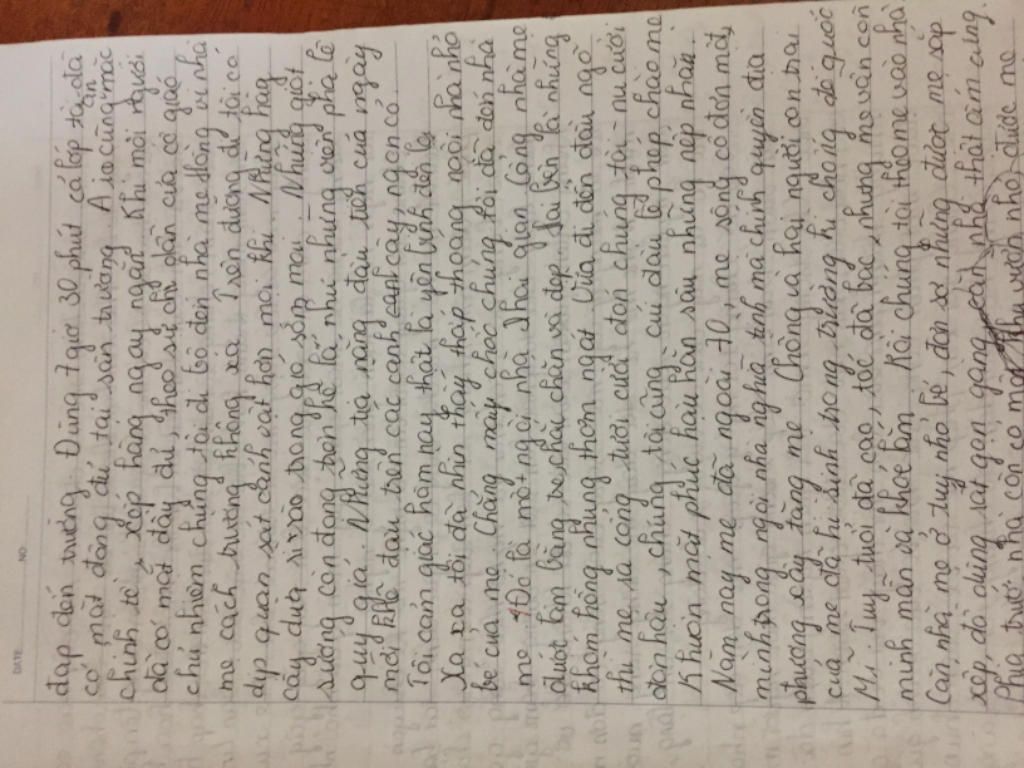 DATE NO
đạp đến trường. Đúng 7 giờ 30 phút cả lớp tôi đã
có mặt đông đủ tại sân trường. Ai ai cũng ăn mặc
chỉnh tề, xếp hàng ngay ngắn. Khi mọi người
đã có mặt đầy đủ, theo sự chỉ dẫn của cô giáo
chủ nhiệm chúng tôi đi bộ đến nhà mẹ Hồng vì nhà
mẹ cách trường không xa. Trên đường đi tôi có
dịp quan sát cảnh vật hơn mọi khi. Những hàng
cây dừa xì xào trong gió sớm mai. Những giọt
sương còn đọng trên kẽ lá như những viên pha lê
quý giá. Những tia nắng đầu tiên của ngày
mới khẽ đậu trên các cành cành cây, ngọn cỏ.
Tôi cảm giác hôm nay thật là yên bình đến lạ
Xa xa tôi đã nhìn thấy thấp thoáng ngôi nhà nhỏ
bé của mẹ. Chẳng mấy chốc chúng tôi đã đến nhà
mẹ. Đó là một ngôi nhà hai gian. Cổng nhà mẹ
được làm bằng tre chắc chắn và đẹp. Hai bên là những
khóm hồng nhung thơm ngát. Vừa đi đến đầu ngõ
thì mẹ ra cổng tươi cười đón chúng tôi nụ cười
đôn hậu, chúng tôi cũng cúi đầu lễ phép chào mẹ
Khuôn mặt phúc hậu hằn sâu những nếp nhăn.
Năm nay mẹ đã ngoài 70, mẹ sống cô đơn một
mình trong ngôi nhà nghĩa tình mà chính quyền địa
phương xây tặng mẹ. Chồng và hai người con trai
của mẹ đã hi sinh trong trường kì chống đế quốc
Mĩ. Tuy tuổi đã cao, tóc đã bạc, nhưng mẹ vẫn còn
minh mẫn và khoẻ lắm. Rồi chúng tôi theo mẹ vào nhà
Căn nhà mẹ ở tuy nhỏ bé, đơn sơ nhưng được mẹ sắp
xếp, đồ dùng rất gọn gàng, căn nhà thật ấm cúng.
Phía trước nhà còn có một khu vườn nhỏ, được mẹ